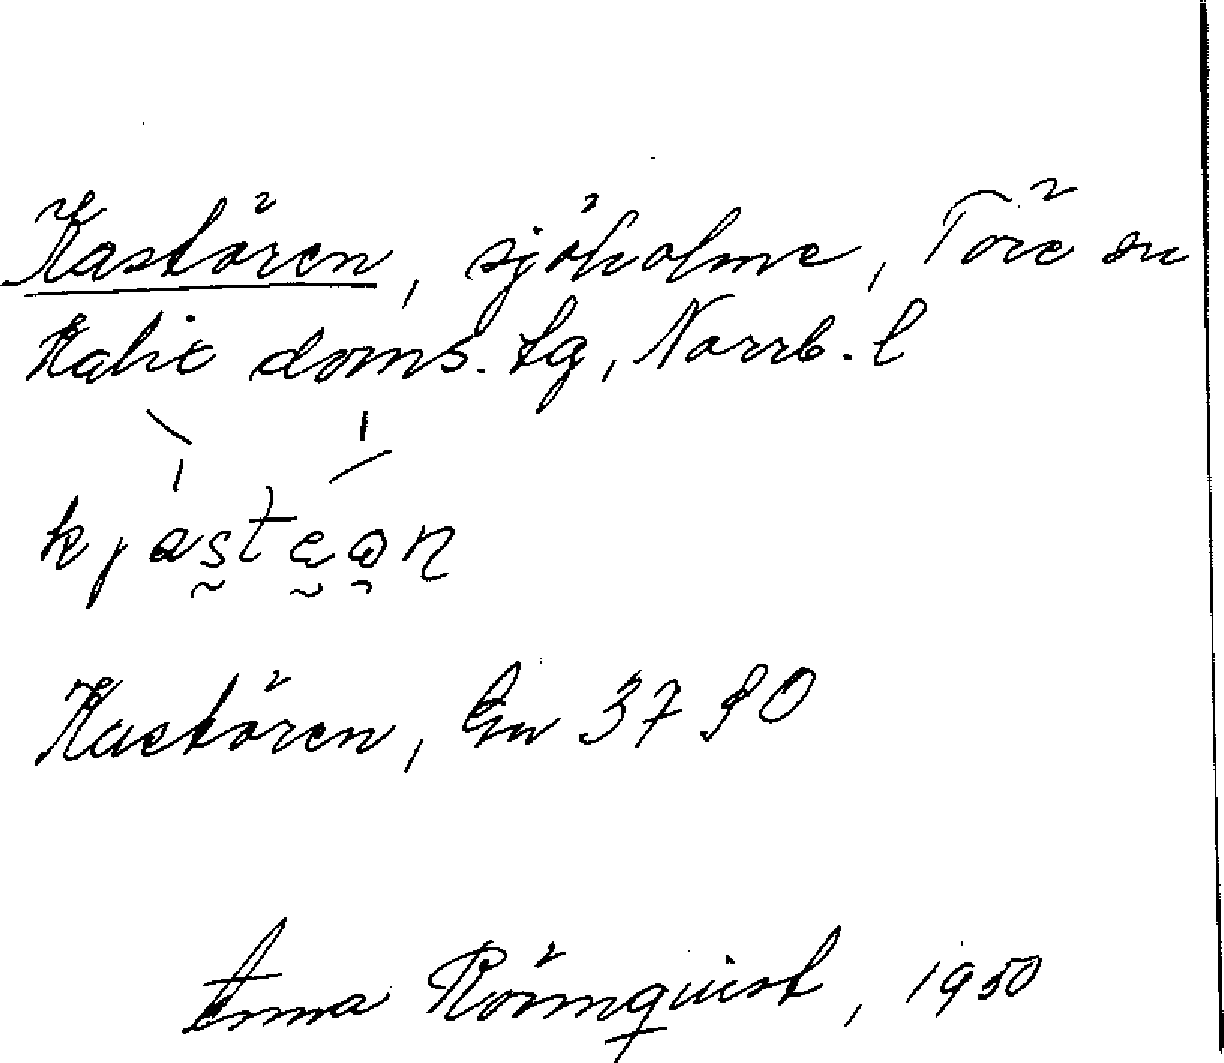 Kastören, sjöholme, Töre sn
Kalix doms. tg, Norrb. l
Kastören, Gn 3790
Anna Rönnquist, 1950